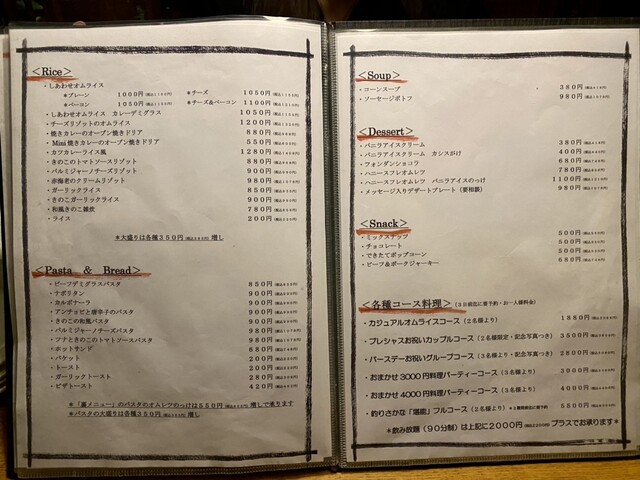 ＜Rice＞
・しあわせオムライス
＊プレーン 1000円(税込1100円) ＊チーズ 1050円
＊ベーコン 1050円 ＊チーズ&ベーコン 1100円
・しあわせオムライス カレーデミグラス 1050円
・チーズリゾットのオムライス 1200円
・焼きカレーのオーブン焼きドリア 880円
・Mini焼きカレーのオーブン焼きドリア 550円
・カツカレーライス風 1280円
・きのこのトマトソースリゾット 880円
・パルミジャーノチーズリゾット 900円
・赤海老のクリームリゾット 980円
・ガーリックライス 850円
・きのこガーリックライス 900円
・和風きのこ雑炊 780円
・ライス 200円
＊大盛りは各種350円 増し
＜Pasta & Bread＞
・ビーフデミグラスパスタ 850円
・ナポリタン 900円
・カルボナーラ 900円
・アンチョビと唐辛子のパスタ 900円
・きのこの和風パスタ 900円
・パルミジャーノチーズパスタ 980円
・ツナときのこのトマトソースパスタ 980円
・ホットサンド 680円
・バケット 200円
・トースト 200円
・ガーリックトースト 280円
・ピザトースト 420円
＊「裏メニュー」のパスタのオムレツのっけは550円 増しで承ります
＊パスタの大盛りは各種350円 増し
＜Soup＞
・コーンスープ 380円
・ソーセージポトフ 980円
＜Dessert＞
・バニラアイスクリーム 380円
・バニラアイスクリーム カシスがけ 400円
・フォンダンショコラ 680円
・ハニースフレオムレツ 780円
・ハニースフレオムレツ バニラアイスのっけ 1100円
・メッセージ入りデザートプレート（要相談） 980円
＜Snack＞
・ミックスナッツ 500円
・チョコレート 500円
・できたてポップコーン 500円
・ビーフ&ポークジャーキー 680円
＜各種コース料理＞（3日前迄に要予約・お一人様料金）
・カジュアルオムライスコース（2名様より） 1880円
・プレシャスお祝いカップルコース（2名様限定・記念写真つき） 3500円
・バースデーお祝いグループコース（3名様より・記念写真つき） 2800円
・おまかせ3000円料理パーティーコース（3名様より） 3000円
・おまかせ4000円料理パーティーコース（3名様より） 4000円
・釣りさかな「堪能」フルコース（2名様より） 5500円
＊飲み放題（90分制）は上記に2000円 プラスでお承ります＊